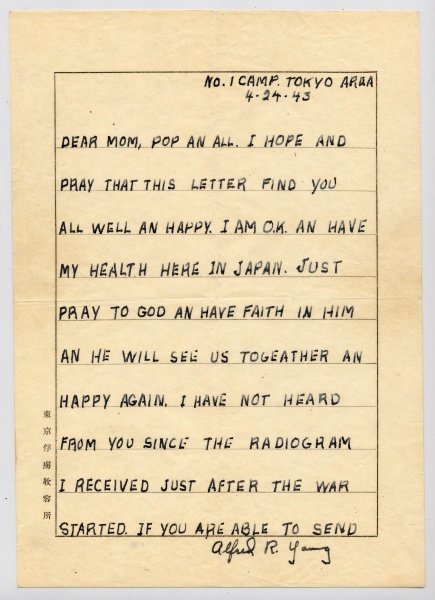 NO. 1 CAMP. TOKYO AREA
4-24-43
DEAR MOM, POP AN ALL. I HOPE AND
PRAY THAT THIS LETTER FIND YOU
ALL WELL AN HAPPY. I AM O.K. AN HAVE
MY HEALTH HERE IN JAPAN. JUST
PRAY TO GOD AN HAVE FAITH IN HIM
AN HE WILL SEE US TOGEATHER AN
HAPPY AGAIN. I HAVE NOT HEARD
FROM YOU SINCE THE RADIOGRAM
I RECEIVED JUST AFTER THE WAR
STARTED. IF YOU ARE ABLE TO SEND
Alfred R. Young
東京俘虜收容所